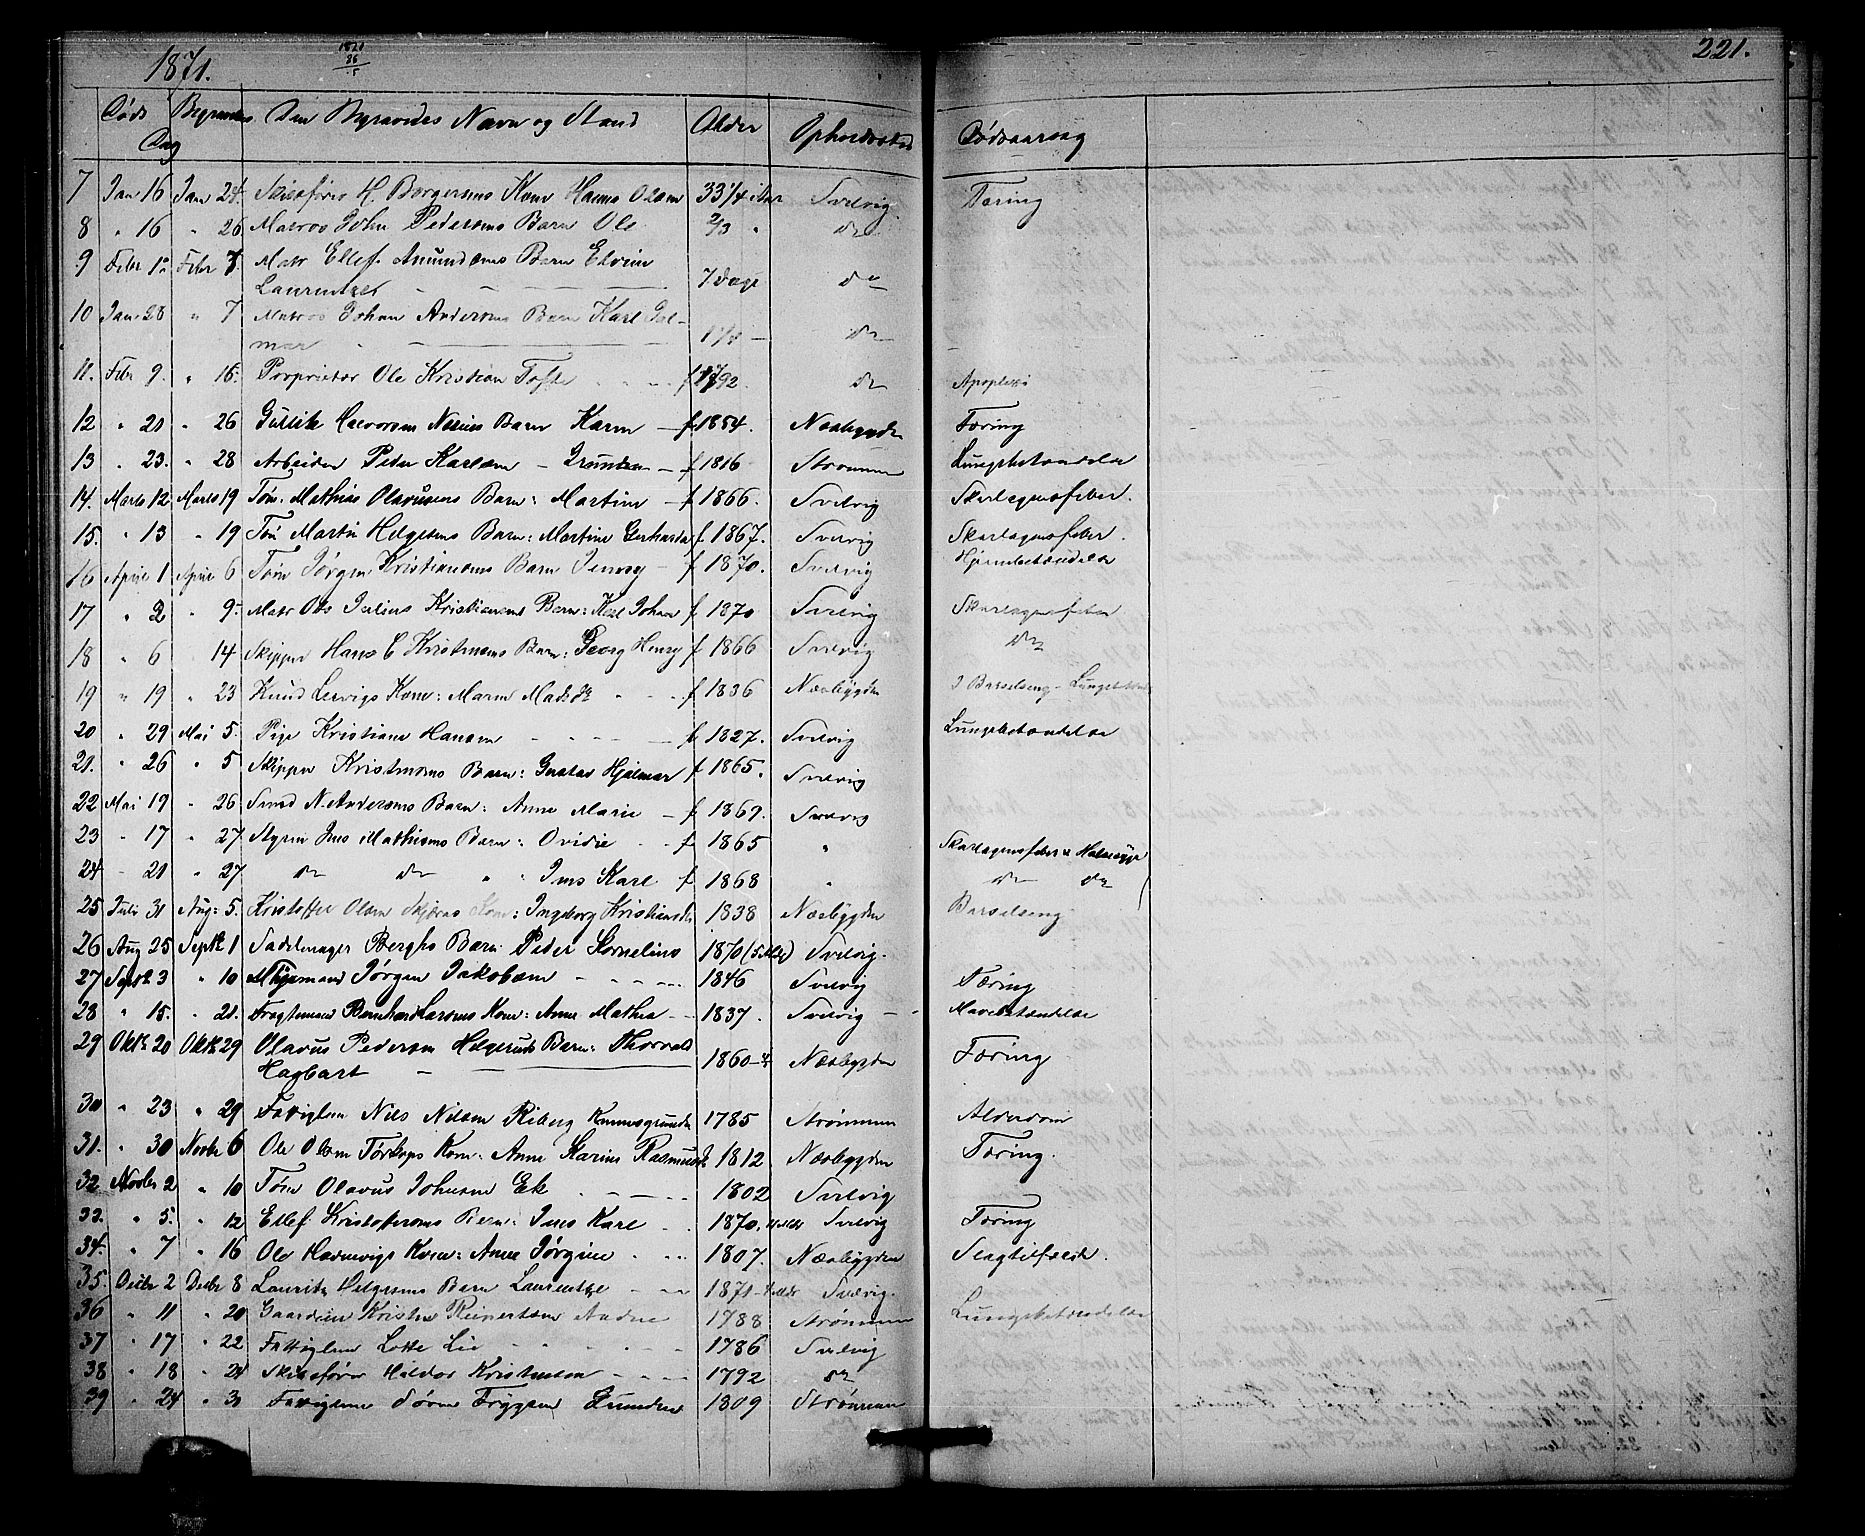 1871. 221.
Døds Begravelses Den Begravedes Navn og Stand Alder Opholdssted Dødsaarsag
Dag
7 Jan 16 Jan 24 Skibsfører H. Borgersens Kone Hanna Olsen 33 1/4 Svelvig Tæring
8 " 16 " 26 Matros John Pedersens Barn Ole 2/3 " do
9 Febr 1 Febr 7 Matr Ellef Amundsens Barn Elvine
Laurentze 7 dage do
10 Jan 28 " 7 Matros Johan Andersens Barn Karl Jal-
mar 1/4 do
11. Febr 9. " 16. Proprietær Ole Kristian Tofte f 1792. do Apoplexi
12 " 21 " 26 Gullik Halvorsen Barn Karen f 1854. Næsbygden Tæring
13 " 23. " 28 Arbeider Peder Karlsen f 1816 Strømmen Lungebetændelse
14. Marts 12 Marts 19 Tøm. Mathias Olavesens Barn: Martine f 1866. Svelvig Skarlagensfeber.
15. " 13 " 19 Tøm Martin Helgesens Barn: Martine Gerharda f. 1867. Svelvig Skarlagensfeber.
16 April 1 April 6 Tøm Jørgen Kristiansens Barn Jenny f 1870. Svelvig Hjernebetændelse
17 " 2 " 9 Matr Ole Julius Kristiansens Barn: Karl Johan f 1870 Svelvig Skarlagensfeber
18 " 6 14 Skipper Hans C Kristensens Barn: Georg Henry f 1866 Svelvig do
19 " 19 " 23 Knud Lervigs Kone: Maren Madsdr f 1836 Næsbygden I Barselseng - Lungebet
20 " 29 Mai 5. Pige Kristiane Hansen f 1827. Svelvig Lungebetændelse
21. " 26 " 5 Skipper Kristensens Barn: Gustav Hjalmar f 1865. Svelvig
22 Mai 19 " 26 Smed N. Andersens Barn: Anne Marie f 1869. Svelvig
23 " 17 " 27 Styrm Jens Mathisens Barn: Ovidie f 1865 " Skarlagensfeber & Halssyge
24 - 21 " 27 do do " Jens Karl f 1868 " do do
25 Juli 31 Aug: 5. Kristoffer Olsen Kone: Ingeborg Kristiansdr 1838 Næsbygden Barselseng
26 Aug 25 Septb 1 Sadelmager Berghs Barn Peder Kornelius 1870 Svelvig.
27 Septb 3 " 10 Jørgen Jakobsen 1846 Svelvig Tæring
28 " 15. " 21. Fragtemand Bernhard Larsens Kone: Anne Mathea 1837. Svelvig Mavebetændelse
29 Oktb 20 Oktb 29 Olavus Pedersen Helgerud Barn: Thorvald
Hagbart 1860 Næsbygden Tæring
30 " 23 " 29 Fattiglem Nils Nilsen Riberg 1785 Strømmen Alderdom
31. " 30 Novbr 6 Ole Olsen Kone: Anne Karine Rasmusdr 1812 Næsbygden Tæring.
32 Novbr 2 " 10 Tøm Olavus Johnsen Ek 1802 Svelvig
33. " 5. " 12 Ellef Kristofersens Barn: Jens Karl 1870. Svelvig Tæring
34. " 7 " 16 Ole Havnevigs Kone: Anne Jørgine 1807. Næsbygden Slagtilfælde.
35. Decbr 2 Decbr 8 Lauritz Helgesens Barn Laurentze 1871 Svelvig.
36 " 11 " 20 Gaardm Kristen Reinertsen 1788 Strømmen Lungebetændelse
37 " 17 " 22 Fattiglem Lotte Lie 1786 Svelvig
38 " 18 " 24 Skibsfører Haldor Kristensen 1792 do
39 " 24 " 31 Fattiglem Søren 1809 Strømmen